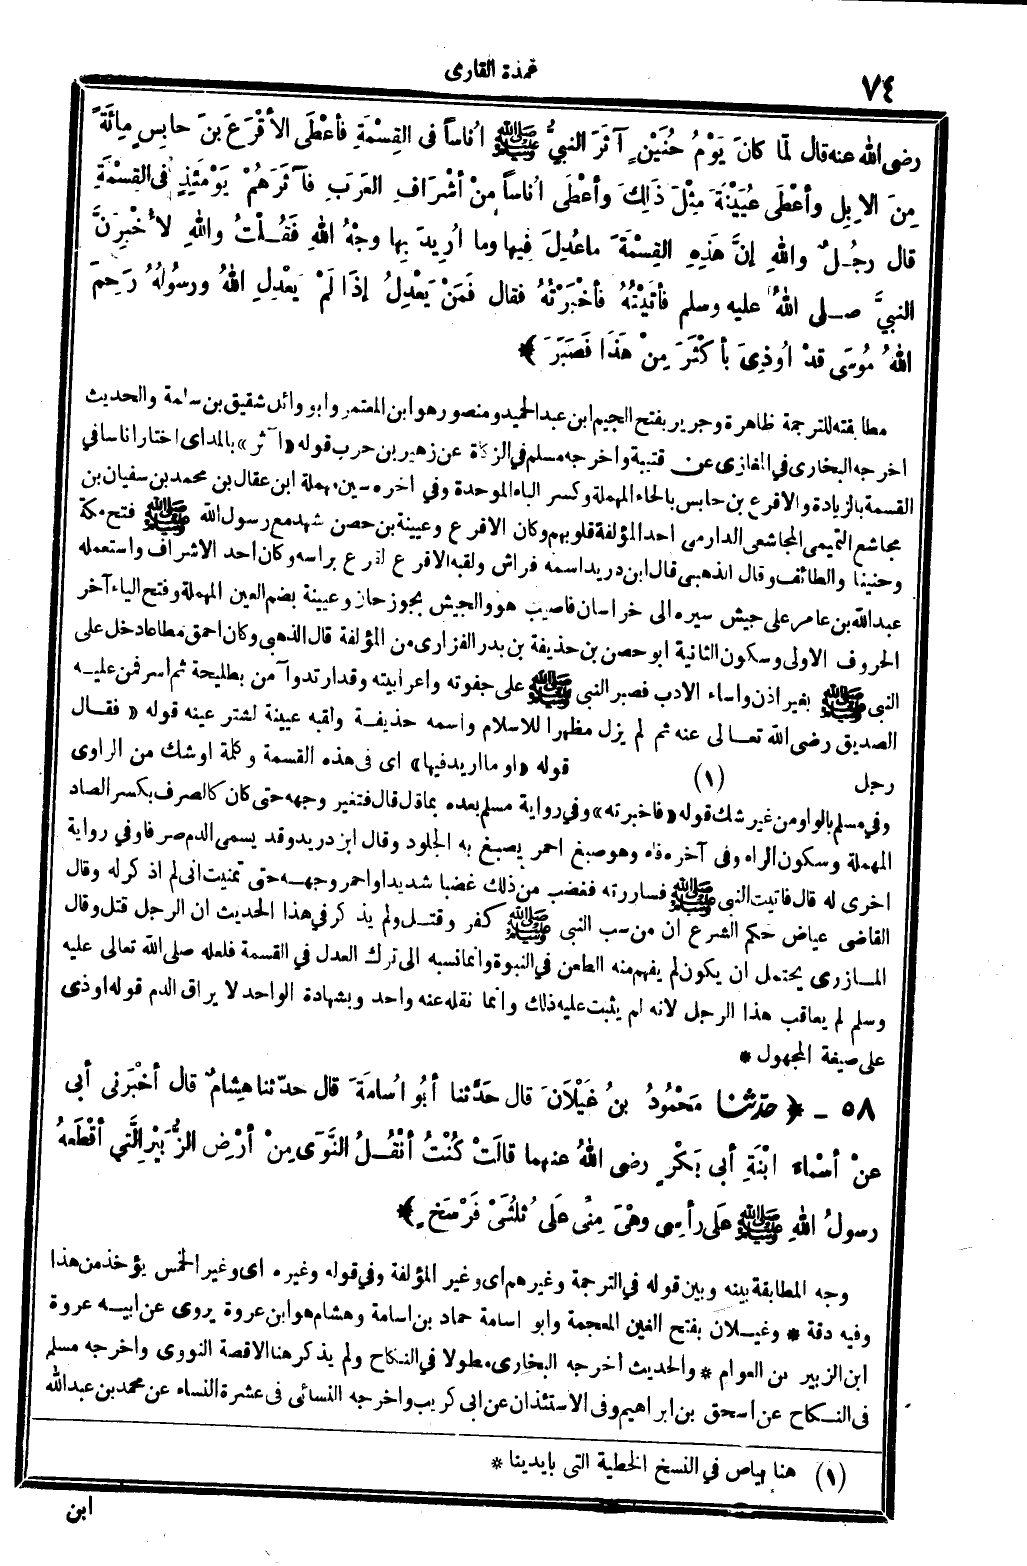 ٧٤
عمدة القارى
رضى الله عنه قال لَمَّا كانَ يَوْمُ حُنَيْنٍ آثَرَ النبيُّ ﷺ اُناساً فى القِسْمَةِ فأعْطَى الأقْرَعَ بنَ حابِسٍ مِائَةً
مِنَ الاِبِلِ وأعْطَى عُيَيْنَةَ مِثْلَ ذَلِكَ وأعْطَى اُناساً مِنْ أشْرَافِ العَرَبِ فآثَرَهُمْ يَوْمَئِذٍ فى القِسْمَةِ
قال رجُـلٌ واللهِ إنَّ هَذِهِ القِسْمَةَ ماعُدِلَ فِيها وما اُرِيدَ بِها وجْهُ اللهِ فَقُـلْتُ واللهِ لأُخْبِرَنَّ
النبيَّ صـلى اللهُ عليه وسلم فأتَيْتُهُ فأخْبَرْتُهُ فقال فَمَنْ يَعْدِلُ إذَا لَمْ يَعْدِلِ اللهُ ورسُولُهُ رَحِمَ
اللهُ مُوسَى قَدْ اُوذِىَ بأكْثَرَ مِنْ هَذَا فَصَبَرَ ﴾ *
مطابقته للترجمة ظاهرة وجرير بفتح الجيم ابن عبد الحميد ومنصور هو ابن المعتمر وابو وائل شقيق بن سلمة والحديث
اخرجه البخارى في المغازى عن قتيبة واخرجه مسلم في الزكاة عن زهير بن حرب قوله «آثر» بالمد اى اختار اناسا في
القسمة بالزيادة والاقرع بن حابس بالحاء المهملة وكسر الباء الموحدة وفي آخره سين مهملة ابن عقال بن محمد بن سفيان بن
مجاشع التميمى المجاشعى الدارمى احد المؤلفة قلوبهم وكان الاقرع وعيينة بن حصن شهد مع رسول الله ﷺ فتح مكة
وحنينا والطائف وقال الذهبى قال ابن دريد اسمه فراش ولقبه الاقرع لقرع براسه وكان احد الاشراف واستعمله
عبد الله بن عامر على جيش سيره الى خراسان فاصيب هو والجيش بجوزجان وعيينة بضم العين المهملة وفتح الياء آخر
الحروف الاولى وسكون الثانية ابو حصن بن حذيفة بن بدر الفزارى من المؤلفة قال الذهبى وكان احمق مطاعا دخل على
النبى ﷺ بغير اذن واساء الادب فصبر النبى ﷺ على جفوته واعرابيته وقد ارتد وآمن بطليحة ثم أسر فمن عليـه
الصديق رضى الله تعـالى عنه ثم لم يزل مظهرا للاسلام واسمه حذيفـة ولقبه عيينة لشتر عينه قوله « فقـال
رجل (١) قوله «او ما اريد فيها» اى فى هذه القسمة وكلمة او شك من الراوى
وفي مسلم بالواو من غير شك قوله «فاخبرته» وفي رواية مسلم بعده بما قال قال فتغير وجهه حتى كان كالصرف بكسر الصاد
المهملة وسكون الراء وفى آخره فاء وهو صبغ احمر يصبغ به الجلود وقال ابن دريد وقد يسمى الدم صرفا وفي رواية
اخرى له قال فاتيت النبى ﷺ فساررته فغضب من ذلك غضبا شديدا واحمر وجهـه حتى تمنيت انى لم اذكر له وقال
القاضى عياض حكم الشرع ان من سب النبى ﷺ كفر وقتـل ولم يذكر في هذا الحديث ان الرجل قتل وقال
المـازرى يحتمل ان يكون لم يفهم منه الطعن في النبوة وانما نسبه الى ترك العدل في القسمة فلعله صلى الله تعالى عليه
وسلم لم يعاقب هذا الرجل لانه لم يثبت عليه ذلك وانما نقله عنه واحد وبشهادة الواحد لا يراق الدم قوله اوذى
على صيغة المجهول *
٥٨ ـ ﴿ حدثنا مَحْمُودُ بنُ غَيْلَانَ قال حَدَّثنا أبُو اُسامَةَ قال حدّثنا هِشامٌ قال أخْبَرَنى أبى
عنْ أسْماءَ ابْنَةِ أبى بَكْرٍ رضى اللهُ عنهما قالَتْ كُنْتُ أنْقُـلُ النَّوَى مِنْ أرْضِ الزُّبَيْرِ الَّتِي أقْطَعَهُ
رسولُ اللهِ ﷺ عَلَى رأسِى وهْىَ مِنِّى عَلَى ثُلثَىْ فَرْسَخٍ ﴾ *
وجه المطابقة بينه وبين قوله في الترجمة وغيرهم اى وغير المؤلفة وفي قوله وغيره اى وغير الخمس يؤخذ من هذا
وفيه دقة * وغيـلان بفتح الغين المعجمة وابو اسامة حماد بن اسامة وهشام هو ابن عروة يروى عن ابيـه عروة
ابن الزبير بن العوام * والحديث أخرجه البخارى مطولا في النكاح ولم يذكر هنا الا قصة النووى واخرجه مسلم
فى النـكاح عن اسحق بن ابراهيم وفى الاستئذان عن ابى كريب واخرجه النسائى فى عشرة النساء عن محمد بن عبد الله
(١) هنا بياض في النسخ الخطية التى بايدينا *
ابن